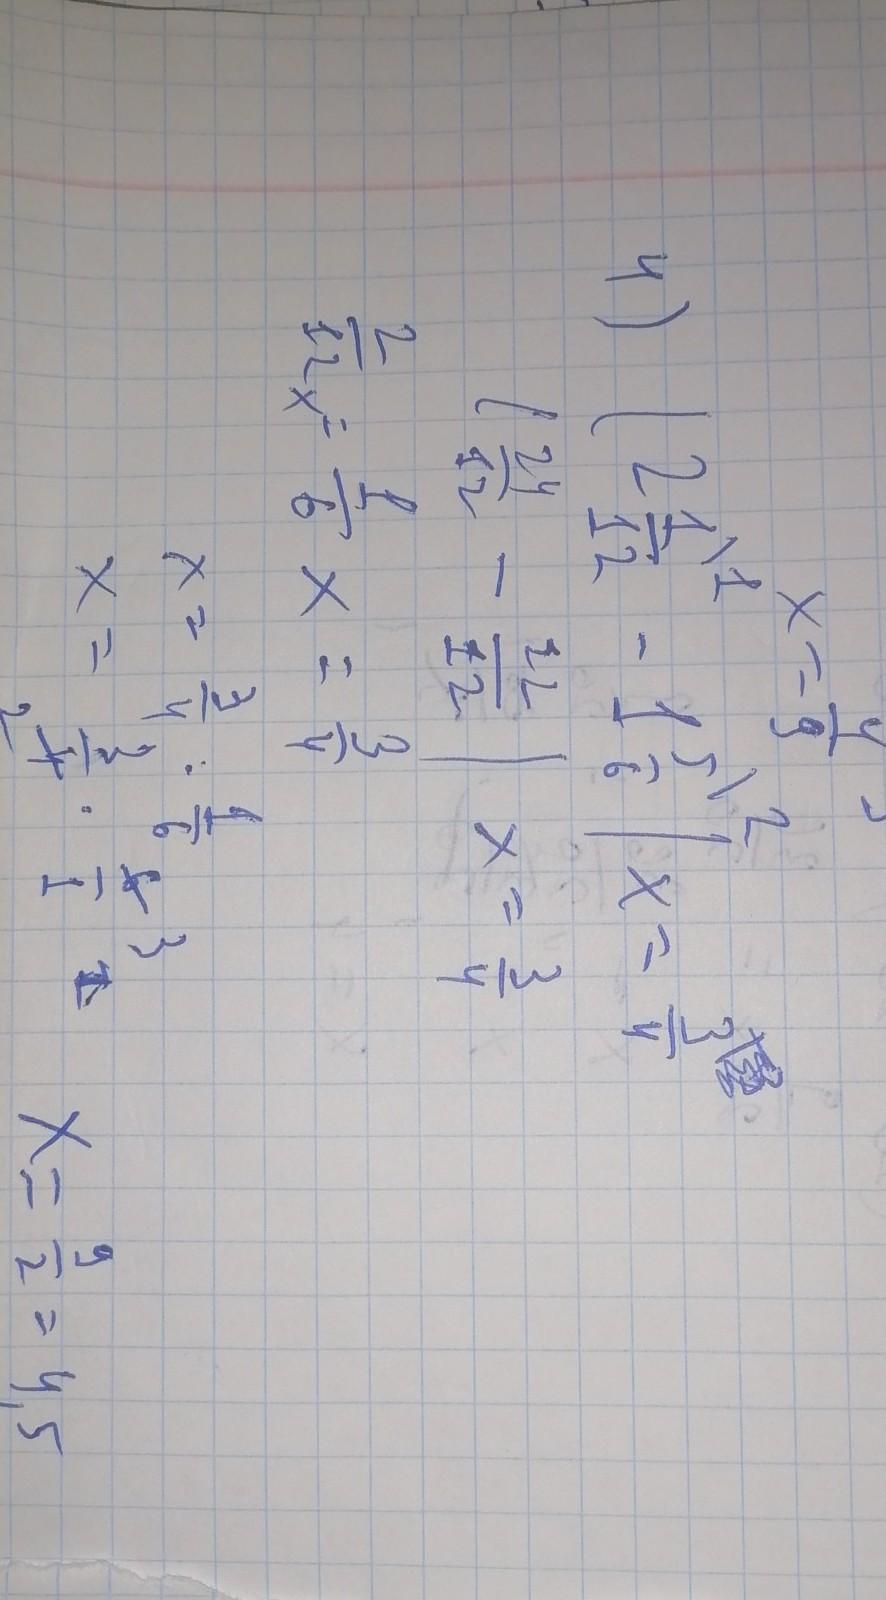 x = 4/9
4) (2 1/12 \1 - 1 5/6 \2) x = 3/4
(24/12 - 22/12) x = 3/4
2/12 x = 1/6 x = 3/4
x = 3/4 : 1/6
x = 3/4 · 6/1
2 3 1
x = 9/2 = 4,5